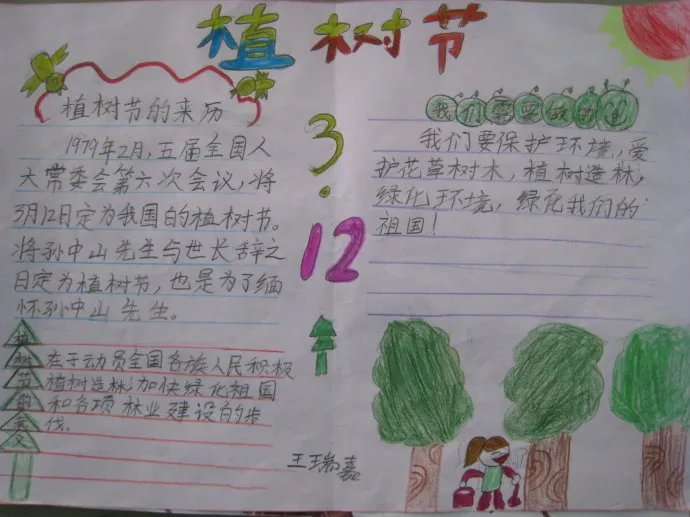 植树节
植树节的来历
1979年2月,五届全国人
大常委会第六次会议,将
3月12日定为我国的植树节。
将孙中山先生与世长辞之
日定为植树节,也是为了缅
怀孙中山先生。
植树节的意义
在于动员全国各族人民积极
植树造林,加快绿化祖国
和各项林业建设的步
伐。
3.
12
我们需要做的
我们要保护环境,爱
护花草树木,植树造林,
绿化环境,绿花我们的
祖国!
王瑞嘉